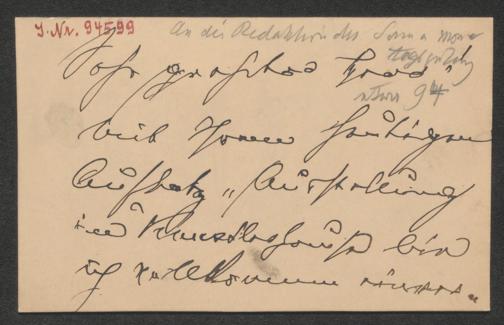 J. Nr. 94599
An die Redaktion der Sonn u Mon
tagszeitung
Sehr geehrter Herr!
94
Mit Ihrem heutigen
Aufsatz „Ausstellung
im Künstlerhause" bin
ich vollkommen